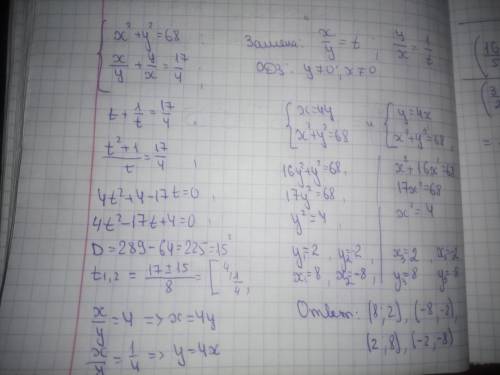 x² + y² = 68
x/y + y/x = 17/4
Замена: x/y = t ; y/x = 1/t
ОДЗ: y ≠ 0 ; x ≠ 0
t + 1/t = 17/4 ;
(t² + 1)/t = 17/4 ;
4t² + 4 - 17t = 0 ,
4t² - 17t + 4 = 0 ;
D = 289 - 64 = 225 = 15²
t₁,₂ = (17 ± 15)/8 = [ 4 , 1/4 ;
x/y = 4 => x = 4y
x/y = 1/4 => y = 4x
{ x = 4y
x² + y² = 68
16y² + y² = 68 ,
17y² = 68 ,
y² = 4 ,
y₁ = 2 , y₂ = -2 ,
x₁ = 8 , x₂ = -8 ,
и
{ y = 4x
x² + y² = 68 ,
x² + 16x² = 68
17x² = 68
x² = 4
x₃ = 2 , x₄ = -2
y₃ = 8 y₄ = -8
Ответ: (8; 2), (-8, -2),
(2, 8), (-2, -8)